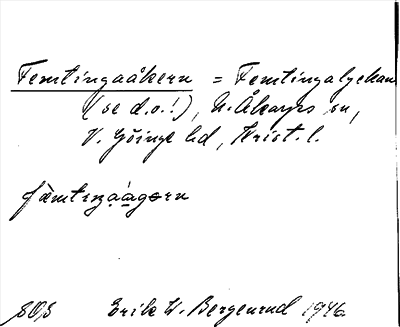 Femtingaåkern = Femtingalyckan
(se d.o.!), N. Åkarps sn,
V. Göinge hd, Krist. l.
fàmtɩŋaágərn
SOS Erik W. Bergenrud 1946